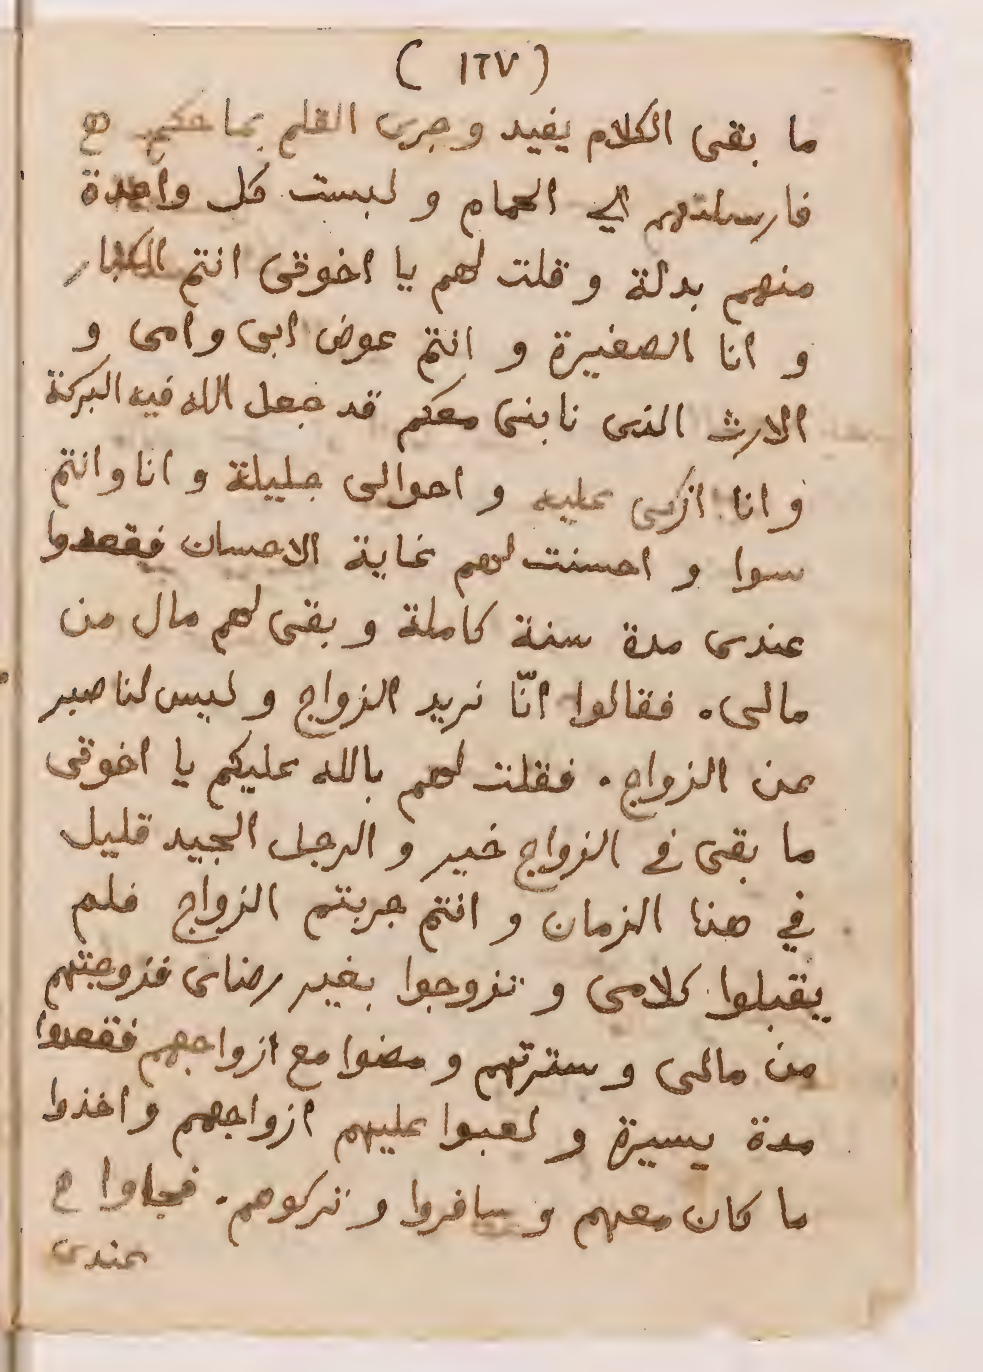 ( ١٢٧ )
ما بقى الكلام يفيد و جرى القلم بما حكم
فارسلتهم الي الحمام و لبست كل واحدة
منهم بدلة و قلت لهم يا اخوتى انتم الكبار
و انا الصغيرة و انتم عوض ابى و امى و
الارث الذى نابنى معكم قد جعل الله فيه البركة
و انا ازكى عليه و احوالى جليلة و انا وانتم
سوا و احسنت لهم غاية الاحسان فقعدوا
عندى مدة سنة كاملة و بقى لهم مال من
مالى. فقالوا انّا نريد الزواج و ليس لنا صبر
عن الزواج. فقلت لهم بالله عليكم يا اخوتى
ما بقى في الزواج خير و الرجل الجيد قليل
في هذا الزمان و انتم جربتم الزواج فلم
يقبلوا كلامى و تزوجوا بغير رضاى فزوجتهم
من مالى و سترتهم و مضوا مع ازواجهم فقعدوا
مدة يسيرة و لعبوا عليهم ازواجهم واخذوا
ما كان معهم و سافروا و تركوهم. فجاوا
عندى